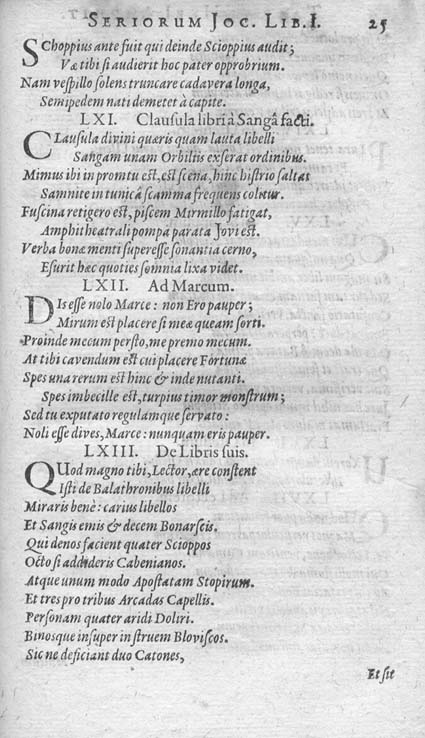 SERIORUM JOC. LIB. I. 25
SChoppius ante fuit qui deinde Scioppius audit;
Væ tibi si audierit hoc pater opprobrium.
Nam vespillo solens truncare cadavera longa,
Semipedem nati demetet à capite.
LXI. Clausula libri à Sangâ facti.
CLausula divini quæris quam lauta libelli
Sangam unam Orbilius exserat ordinibus.
Mimus ibi in promtu est, est scena, hinc histrio saltat
Samnite in tunicâ scamma frequens colitur.
Fuscina retigero est, piscem Mirmillo fatigat,
Amphitheatrali pompâ parata Jovi est.
Verba bonæ menti superesse sonantia cerno,
Esurit hæc quoties somnia lixa videt.
LXII. Ad Marcum.
DIs esse nolo Marce: non Ero pauper;
Mirum est placere si meæ queam sorti.
Proinde mecum persto, me premo mecum.
At tibi cavendum est cui placere Fortunæ
Spes una rerum est hinc & inde nutanti.
Spes imbecille est, turpius timor monstrum;
Sed tu exputato regulamque servato:
Noli esse dives, Marce: nunquam eris pauper.
LXIII. De Libris suis.
QUod magno tibi, Lector, ære constent
Isti de Balathronibus libelli
Miraris benè: carius libellos
Et Sangis emis & decem Bonarscis.
Qui denos facient quater Scioppos
Octo si addideris Cabenianos.
Atque unum modo Apostatam Stopirum.
Et tres pro tribus Arcadas Capellis.
Personam quater aridi Doliri.
Binosque insuper instruem Bloviscos.
Sic ne deficiant duo Catones,
Et sit